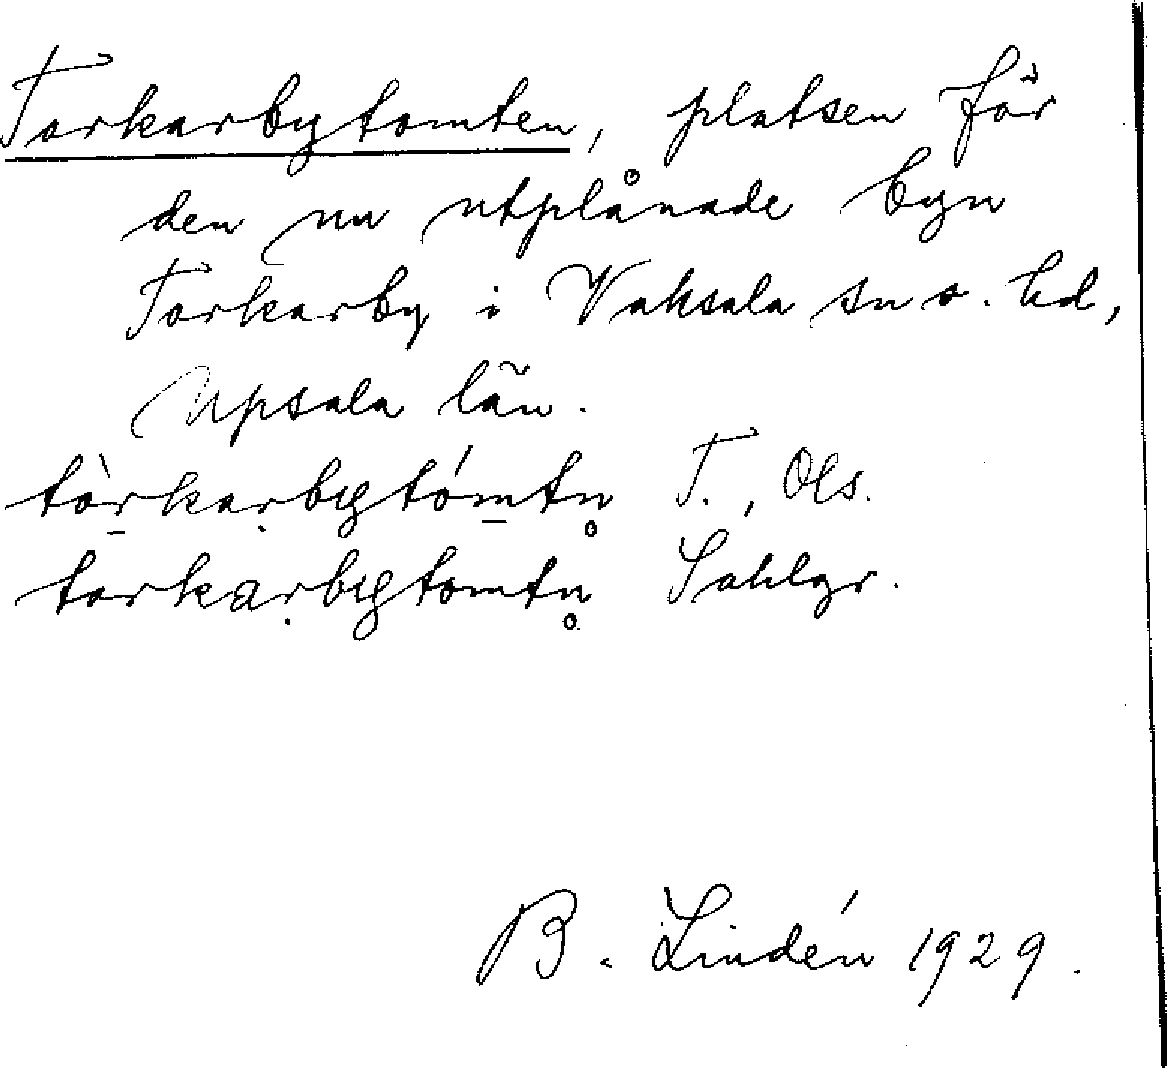 Torkarbytomten, platsen för
den nu utplånade byn
Torkarby i Vaksala sn o. hd,
Upsala län.
tòrkarbytómtn̥ T., Ols.
torkarbytomtn̥ Sahlgr.
B. Lindén 1929.